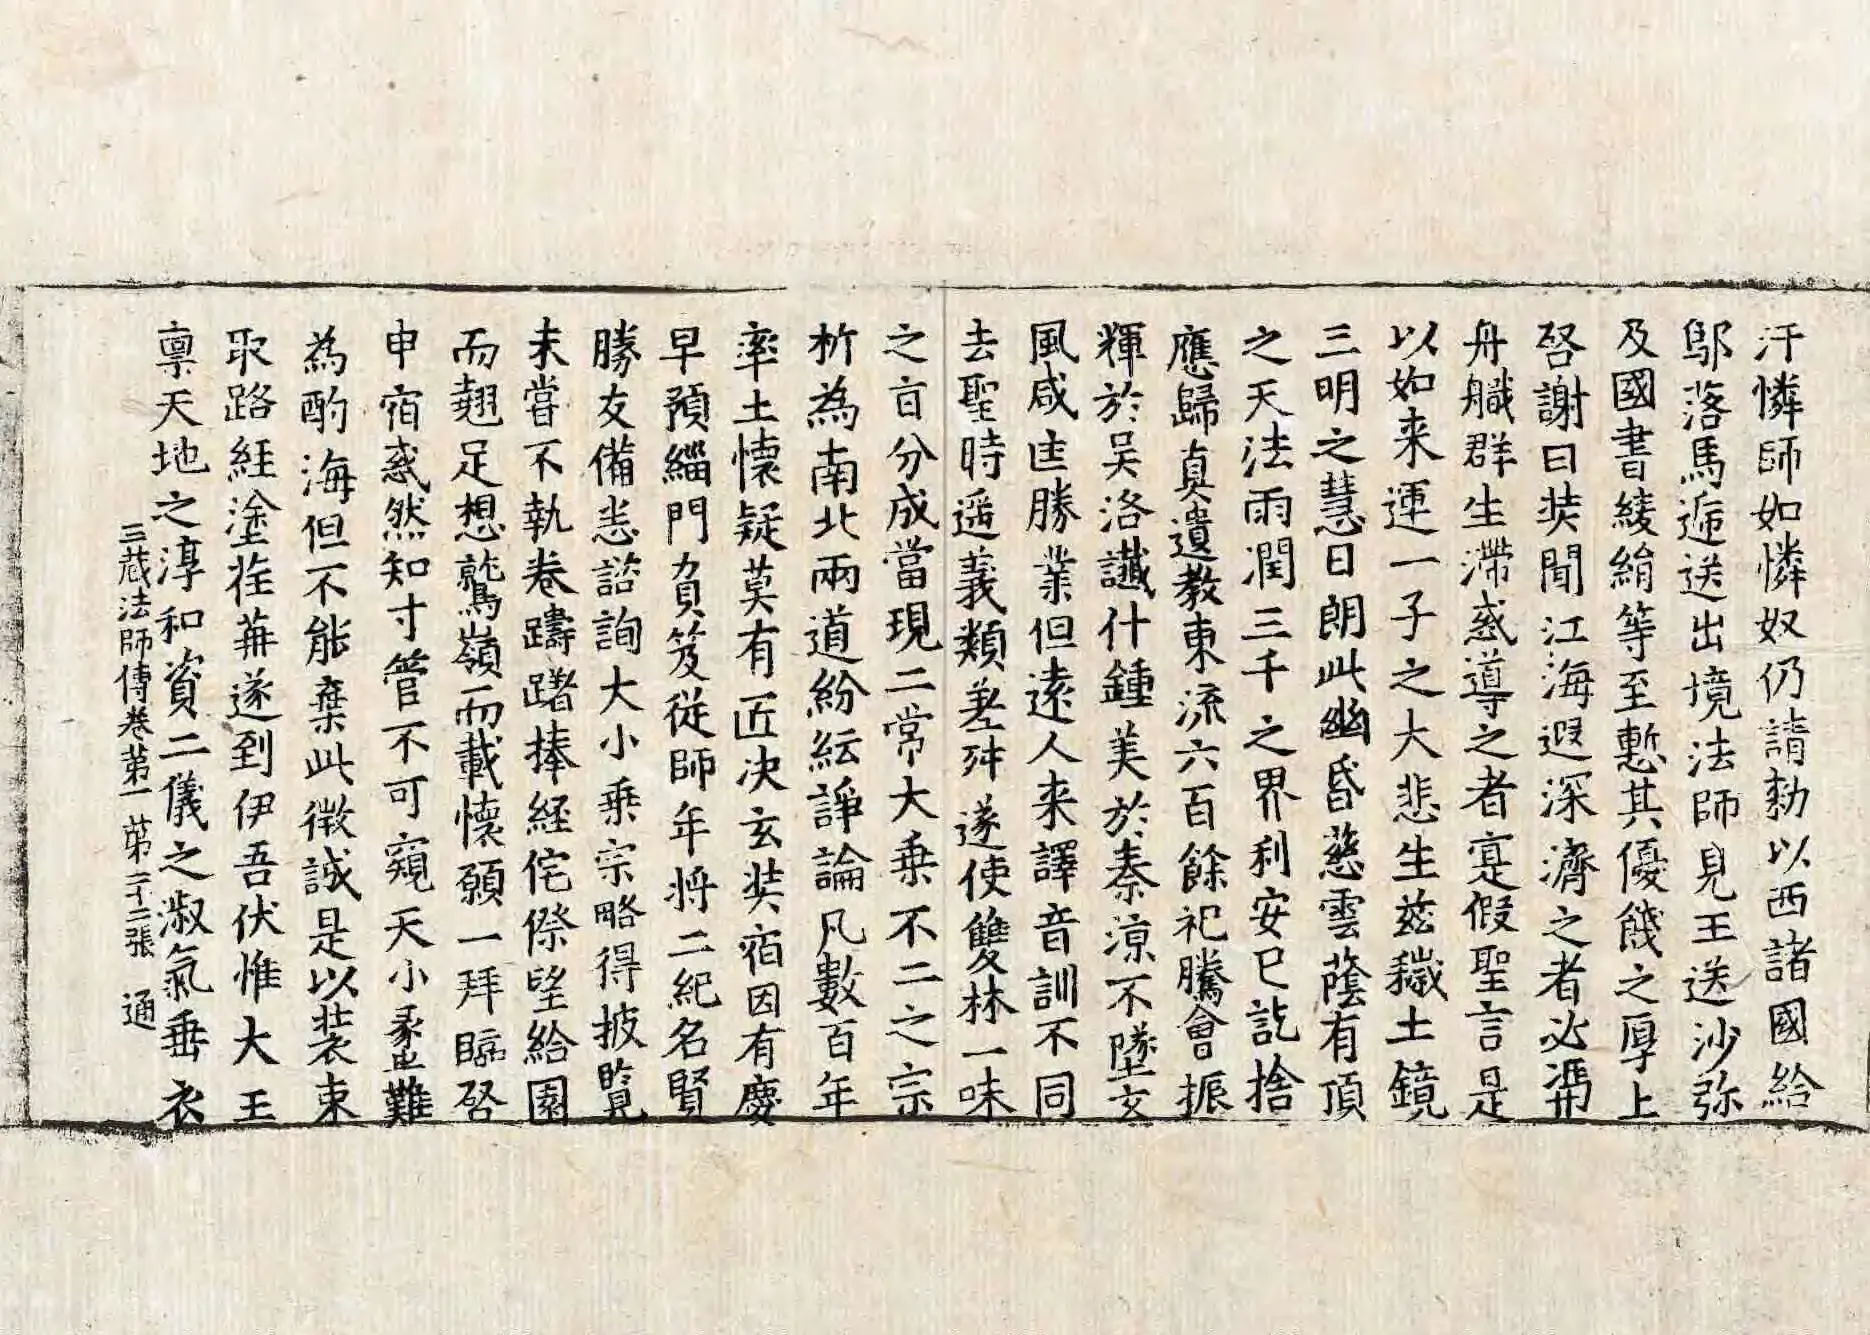 汗憐師如憐奴仍請勑以西諸國給
鄔落馬遞送出境法師見王送沙弥
及國書綾絹等至慙其優餞之厚上
啓謝曰奘聞江海遐深濟之者必馮
舟檝群生滯惑導之者寔假聖言是
以如来運一子之大悲生兹穢土鏡
三明之慧日朗此幽昏慈雲蔭有頂
之天法雨潤三千之界利安已訖捨
應歸真遺教東流六百餘祀騰會振
輝於吴洛讖什鍾美於秦涼不墜玄
風咸匡勝業但遠人来譯音訓不同
去聖時遥義類差舛遂使雙林一味
之旨分成當現二常大乗不二之宗
析為南北兩道紛紜諍論凡數百年
率土懐疑莫有匠决玄奘宿因有慶
早預緇門負笈従師年将二紀名賢
勝友備悉諮詢大小乗宗略得披覧
未甞不執卷躊躇捧経侘傺望給園
而翹足想鷲嶺而載懐願一拜臨啓
申宿惑然知寸管不可窺天小蠡難
為酌海但不能棄此微誠是以装束
取路経塗荏苒遂到伊吾伏惟大王
禀天地之淳和資二儀之淑氣垂衣
三蔵法師傳卷第一 第二十二張 通